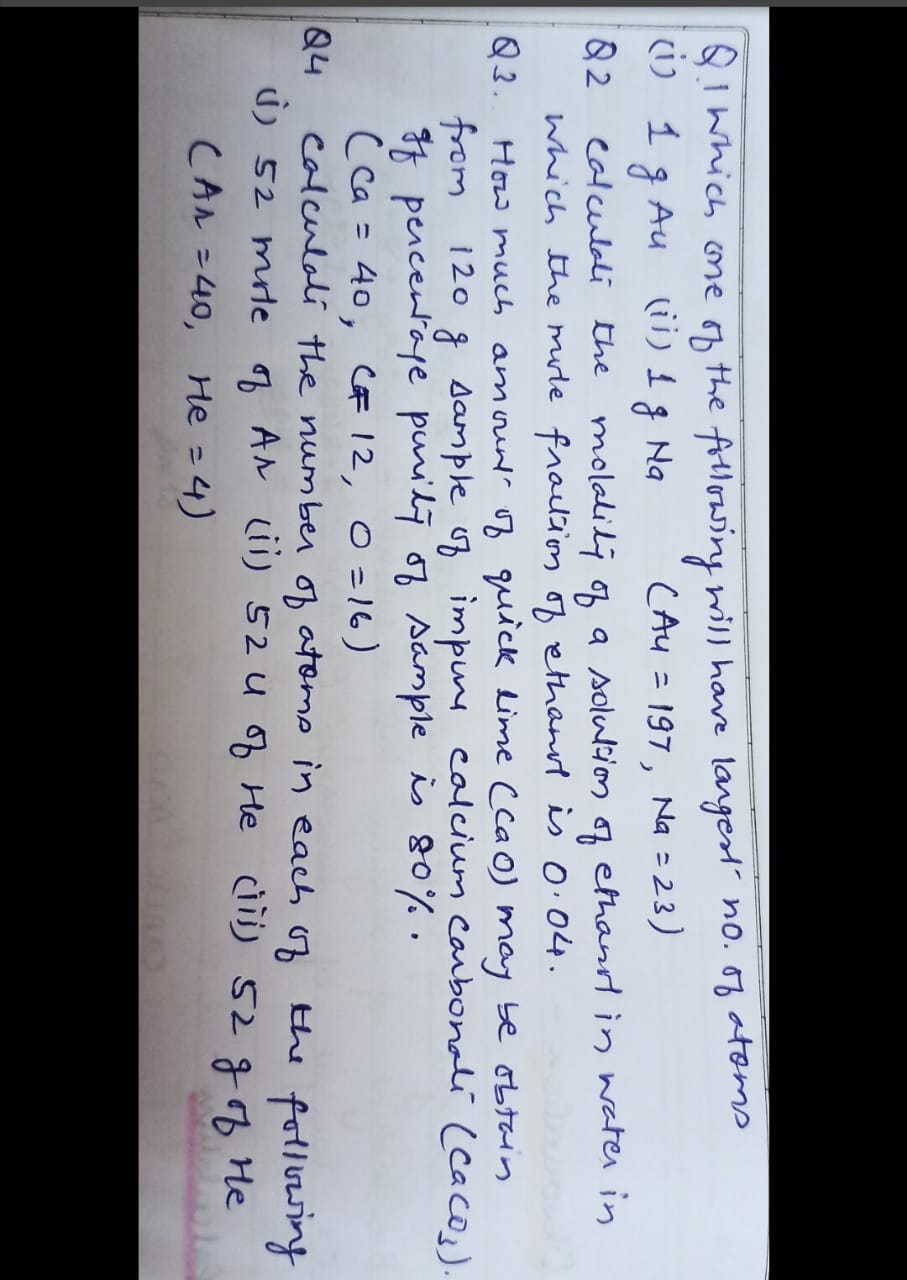 Q.1 which one of the following will have largest no. of atoms
(i) 1 g Au (ii) 1 g Na (Au = 197, Na = 23)
Q2 calculate the molality of a solution of ethanol in water in
which the mole fraction of ethanol is 0.04.
Q3. How much amount of quick lime (CaO) may be obtain
from 120 g sample of impure calcium carbonate (CaCO3).
If percentage purity of sample is 80%.
(Ca = 40, C = 12, O = 16)
Q4 calculate the number of atoms in each of the following
(i) 52 mole of Ar (ii) 52 u of He (iii) 52 g of He
(Ar = 40, He = 4)